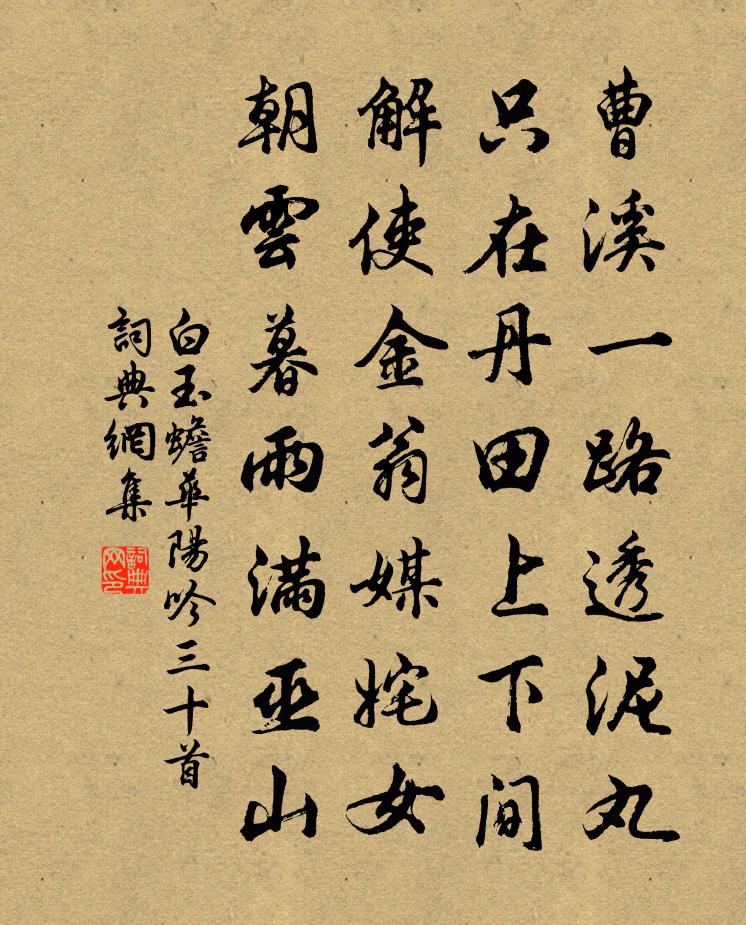 曹溪一路透泥丸
只在丹田上下間
解使金翁媒姹女
朝雲暮雨滿巫山
白玉蟾華陽吟三十首
詞典網集
詞典网印